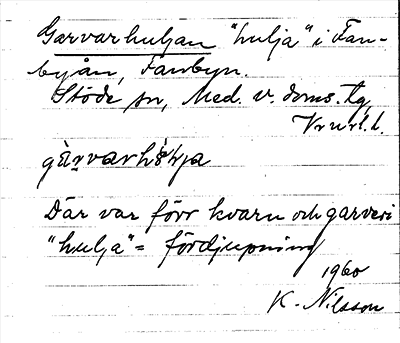 Garvarhuljan "hulja" i Fan-
byån, Fanbyn.
Stöde sn, Med. v. doms. tg
gàrvarhulja
Där var förr kvarn och garveri
"hulja" = fördjupning
1960
K. Nilsson